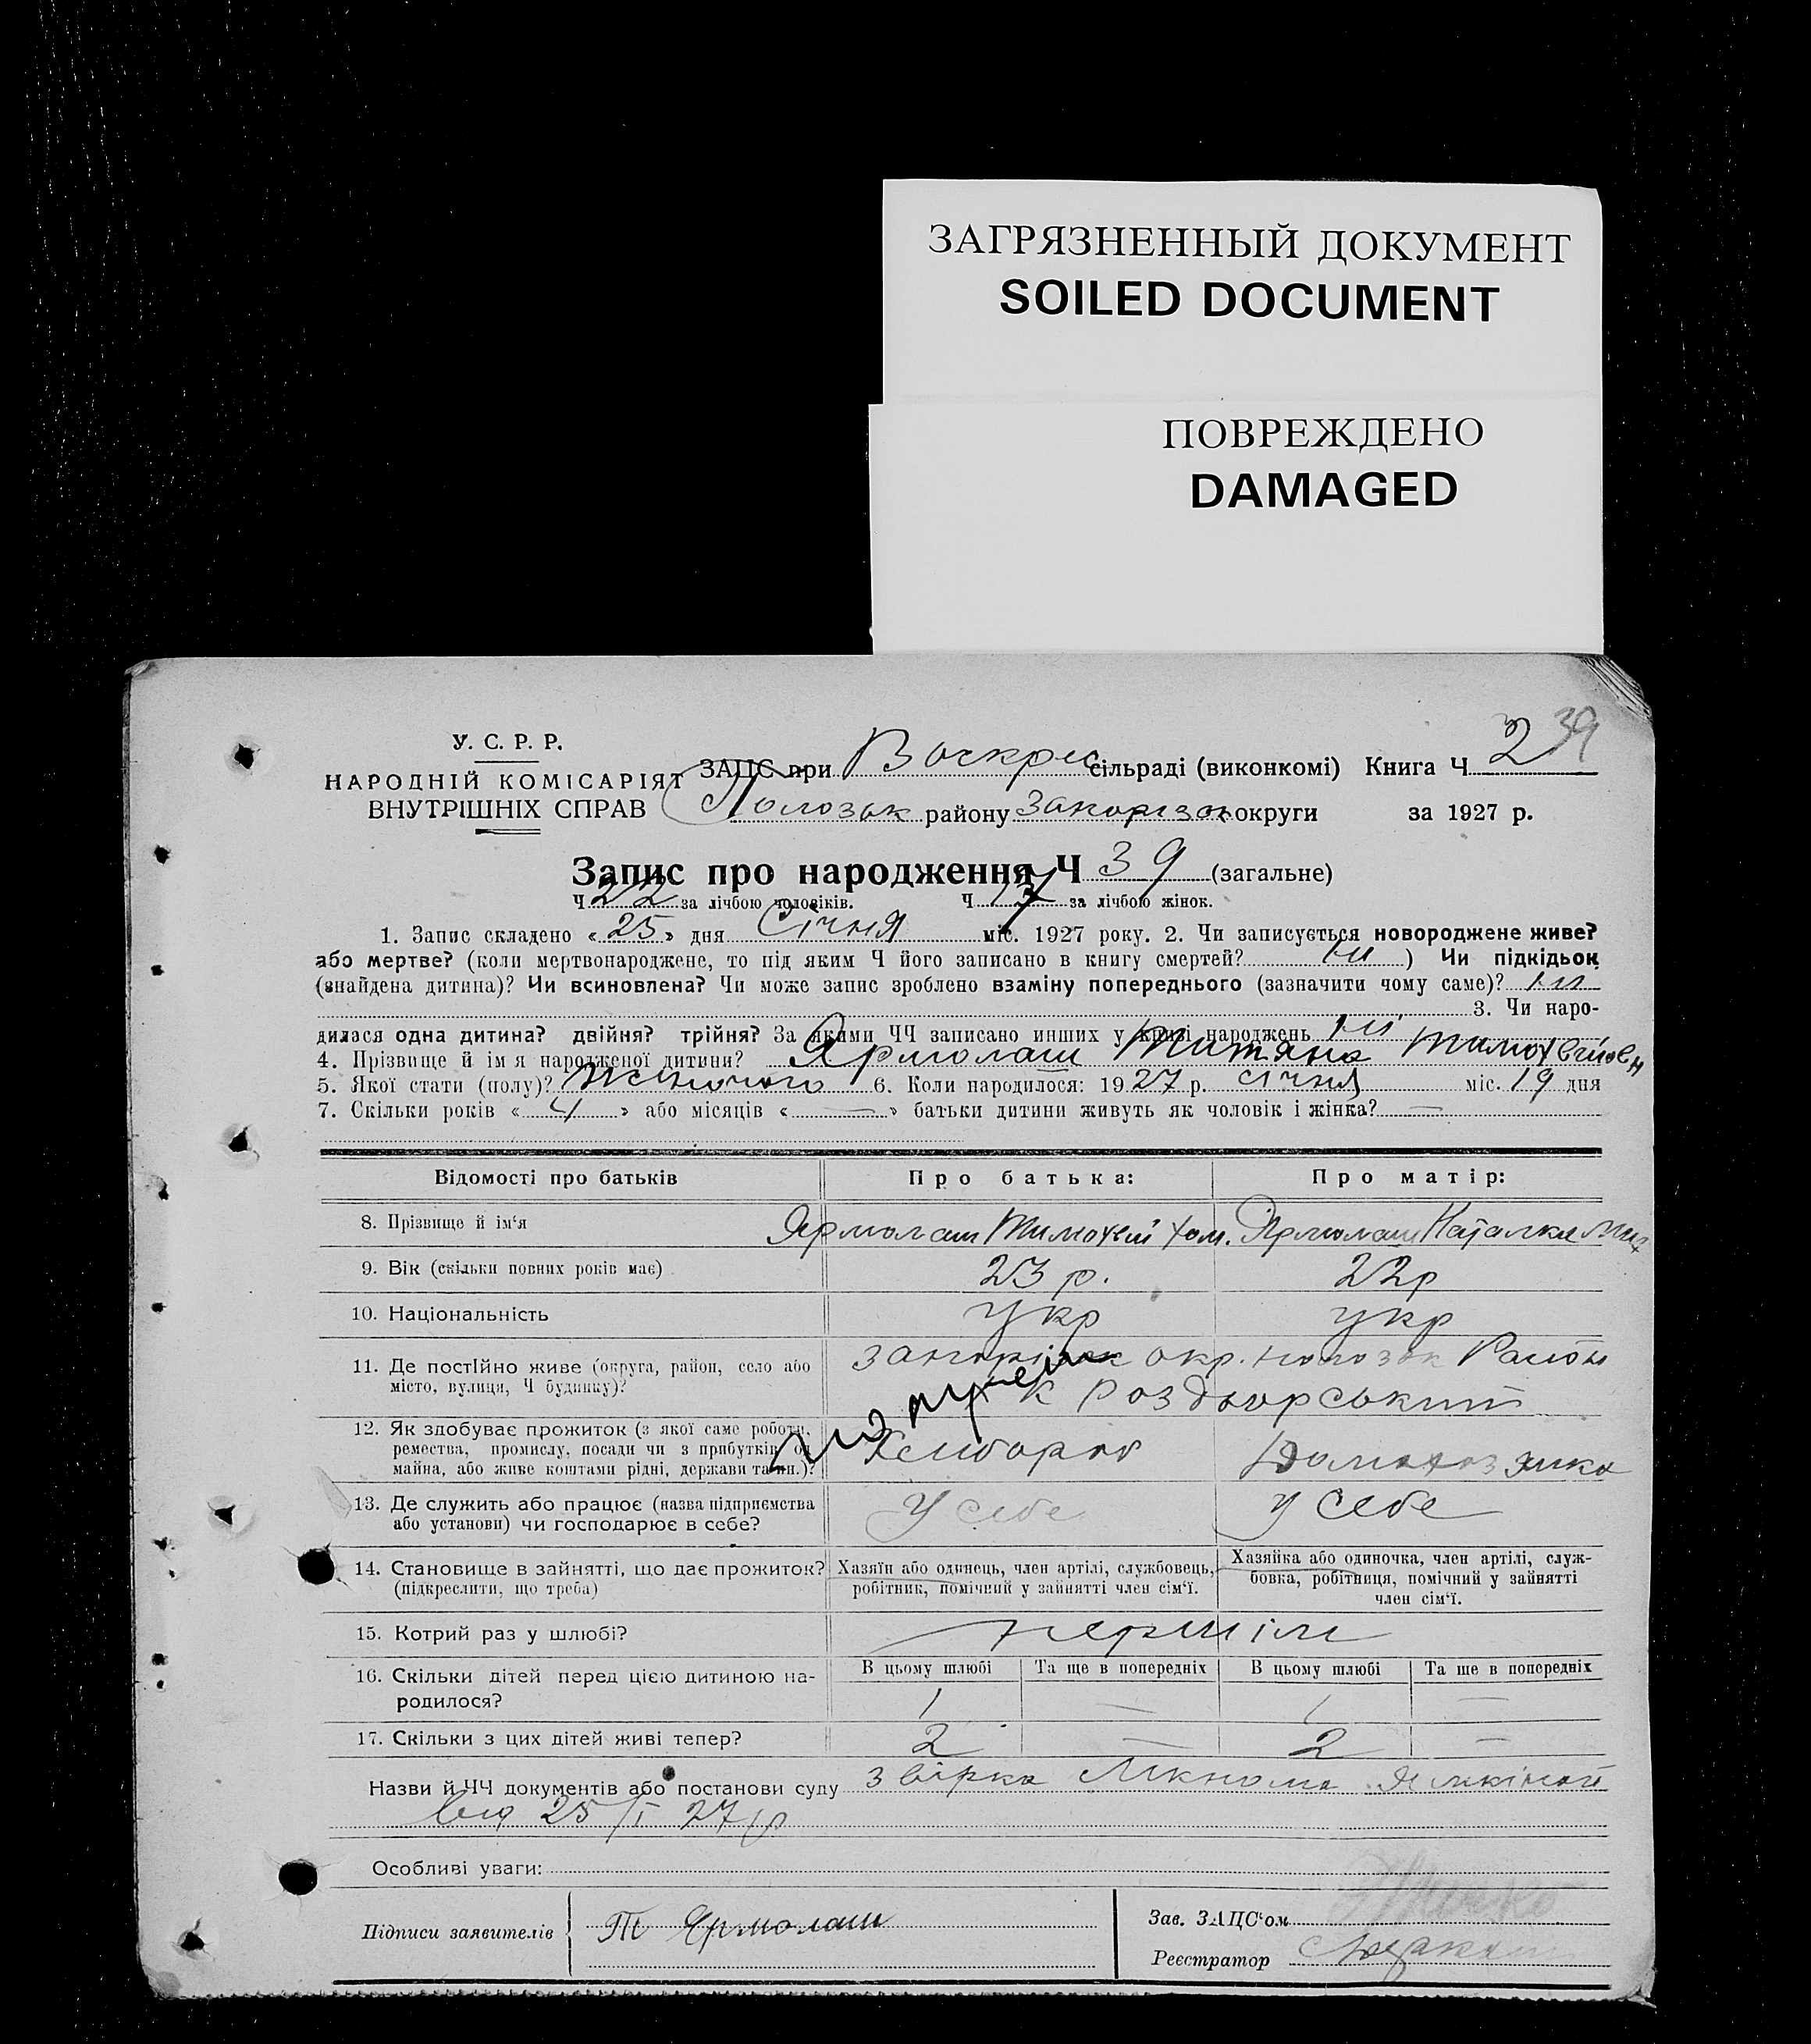 ЗАГРЯЗНЕННЫЙ ДОКУМЕНТ
SOILED DOCUMENT
ПОВРЕЖДЕНО
DAMAGED
39
У. С. Р. Р.
НАРОДНІЙ КОМІСАРІЯТ
ВНУТРІШНІХ СПРАВ
ЗАПС при Воскрес сільраді (виконкомі) Книга Ч 2
Полозьк району Запорізьк округи за 1927 р.
Запис про народження Ч 39 (загальне)
Ч 22 за лічбою чоловіків. Ч 17 за лічбою жінок.
1. Запис складено « 25 » дня Січня міс. 1927 року. 2. Чи записується новороджене живе?
або мертве? (коли мертвонароджене, то під яким Ч його записано в книгу смертей? ні ) Чи підкідьок
(знайдена дитина)? Чи всиновлена? Чи може запис зроблено взаміну попереднього (зазначити чому саме)? ні
3. Чи наро-
дилася одна дитина? двійня? трійня? За якими ЧЧ записано инших у книзі народжень ні
4. Прізвище й імя народженої дитини? Ярмолаш Титяна Тимохвіївн
5. Якої стати (полу)? Жіночого 6. Коли народилося: 1927 р. січня міс. 19 дня
7. Скільки років « 4 » або місяців « — » батьки дитини живуть як чоловік і жінка? —
Відомості про батьків Про батька: Про матір:
8. Прізвище й ім‘я Ярмолаш Тимохвій Хом. Ярмолаш Наталка Мих
9. Вік (скільки повних років має) 23 р. 22 р
10. Національність укр укр
11. Де постійно живе (округа, район, село або Запорізьк окр. Полозьк Район
місто, вулиця, Ч будинку)? к Роздорський
12. Як здобуває прожиток (з якої саме роботи,
ремества, промислу, посади чи з прибутків од Хлібороб Домохозяйка
майна, або живе коштами рідні, держави та ин.)?
13. Де служить або працює (назва підприємства У себе У себе
або установи) чи господарює в себе?
14. Становище в зайнятті, що дає прожиток? Хазяїн або одинець, член артілі, службовець, Хазяйка або одиночка, член артілі, служ-
(підкреслити, що треба) робітник, помічний у зайнятті член сім‘ї. бовка, робітниця, помічний у зайнятті
член сім‘ї.
15. Котрий раз у шлюбі? першім
16. Скільки дітей перед цією дитиною на- В цьому шлюбі Та ще в попередніх В цьому шлюбі Та ще в попередніх
родилося? 1 — 1 —
17. Скільки з цих дітей живі тепер? 2 — 2 —
Назви й ЧЧ документів або постанови суду
від 25/I 27 р
Особливі уваги:
Підписи заявителів Т Ярмолаш
Зав. ЗАЦС‘ом
Реєстратор